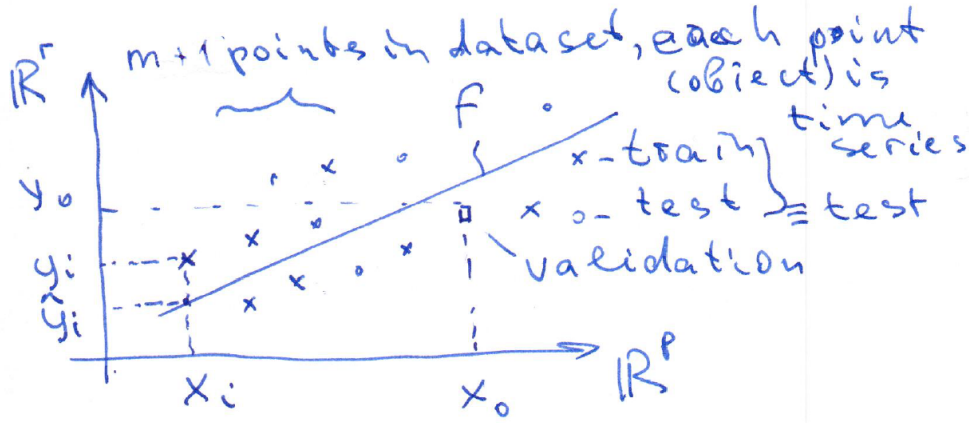 ℝʳ m+1 points in dataset, each point
(object) is
time
series
f
x - train
o - test ≡ test
validation
y₀
yᵢ
ŷᵢ
xᵢ
x₀
ℝᵖ